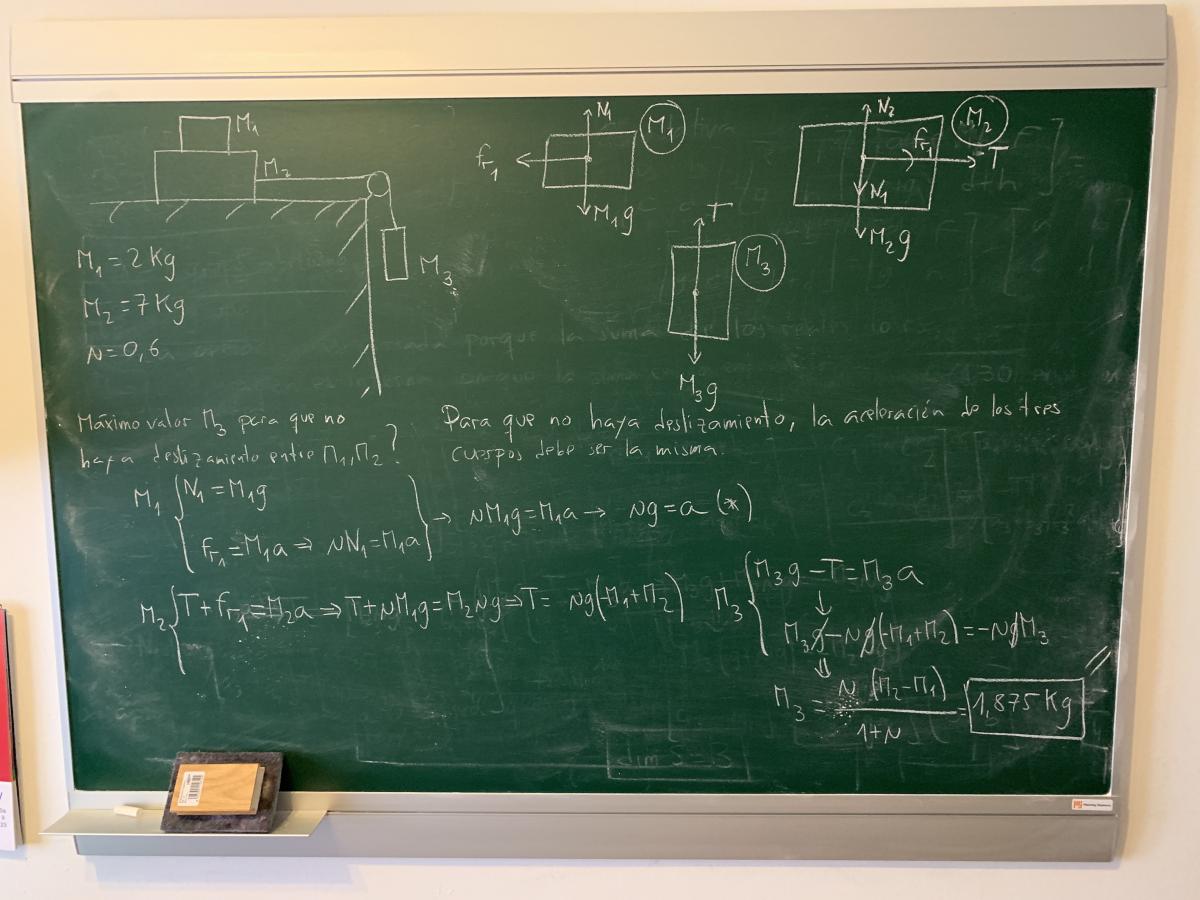 M₁
M₂
M₃
N₁
M₁
fr₁
M₁g
N₂
M₂
fr₁
T
N₁
M₂g
T
M₃
M₃g
M₁ = 2 Kg
M₂ = 7 Kg
N = 0,6
Máximo valor M₃ para que no
haya deslizamiento entre M₁, M₂?
Para que no haya deslizamiento, la aceleración de los tres
cuerpos debe ser la misma.
M₁ { N₁ = M₁g
fr₁ = M₁a ⇒ NN₁ = M₁a } → NM₁g = M₁a → Ng = a (*)
M₂ { T + fr₁ = M₂a ⇒ T + NM₁g = M₂Ng ⇒ T = Ng(-M₁+M₂)
M₃ { M₃g - T = M₃a
↓
M₃g - Ng(-M₁+M₂) = -NgM₃
⇓
M₃ = N (M₂-M₁) / 1+N = 1,875 Kg
dim S = 3